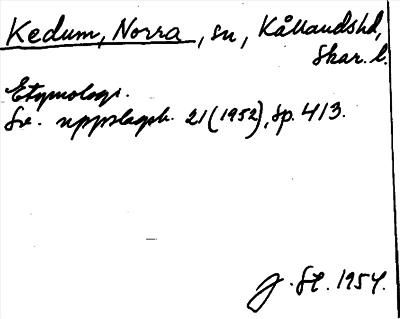 Kedum, Norra, sn, Kållandshd,
Skar. l.
Etymologi.
Sv. uppslagsb. 21 (1952), sp. 413.
J. St. 1954.